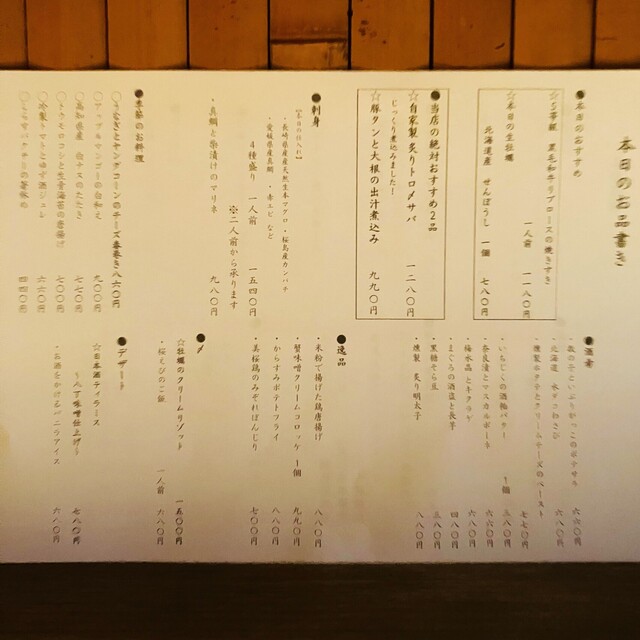 本日のお品書き
●本日のおすすめ
☆5等級 黒毛和牛リブロースの焼きすき
一人前 一一八〇円
☆本日の生牡蠣
北海道産 せんぽうし 一個 七八〇
●当店の絶対おすすめ2品
☆自家製 炙りトロメサバ 一二八〇円
じっくり煮込みました!
☆豚タンと大根の出汁煮込み 九九〇円
●刺身
【本日の仕入れ】
・長崎県産天然生本マグロ・桜島産カンパチ
・愛媛県産真鯛・赤エビ など
4種盛り 一人前 一五四〇円
※二人前から承ります
・真鯛と柴漬けのマリネ 九八〇円
●季節のお料理
〇うなぎとヤングコーンのチーズ春巻き 八六〇円
〇アップルマンゴーの白和え 九〇〇円
〇高知県産 鰹のたたき 七七〇円
〇トウモロコシと生青海苔の唐揚げ 七〇〇円
〇冷製トマトとゆず酒ジュレ 六六〇円
四四〇円
●酒肴
六六〇円
・北海道 水ダコわさび 六八〇円
・燻製ホタテとクリームチーズのペースト 七七〇円
・いちじくの酒粕バター 1個 三八〇円
・奈良漬とマスカルポーネ 六六〇円
・梅水晶とキクラゲ 六八〇円
・まぐろの酒盗と長芋 四八〇円
・黒糖そら豆 三八〇円
・燻製 炙り明太子 八八〇円
●逸品
・米粉で揚げた鶏唐揚げ 八八〇円
・蟹味噌クリームコロッケ 1個 九九〇円
・からすみポテトフライ 八八〇円
・美桜鶏のみぞれぽんじり 七〇〇円
●〆
☆牡蠣のクリームリゾット 一五〇〇円
・桜えびのご飯 一人前 六八〇円
●デザート
☆日本酒ティラミス
〜八丁味噌仕上げ〜 七八〇円
・お酒をかけるバニラアイス 六八〇円